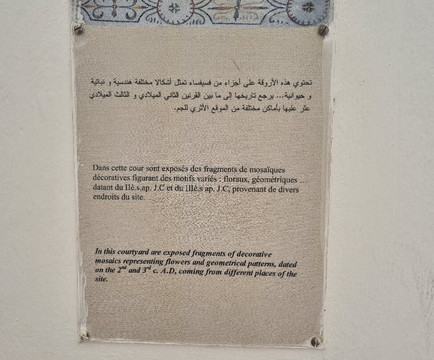 تحتوي هذه الأروقة على أجزاء من فسيفساء تمثل أشكالا مختلفة هندسية و نباتية
و حيوانية... يرجع تاريخها إلى ما بين القرنين الثاني الميلادي و الثالث الميلادي
عثر عليها بأماكن مختلفة من الموقع الأثري للجم.
Dans cette cour sont exposés des fragments de mosaïques
décoratives figurant des motifs variés : floraux, géométriques ...
datant du IIè.s.ap. J.C et du IIIè.s ap. J.C, provenant de divers
endroits du site.
In this courtyard are exposed fragments of decorative
mosaics representing flowers and geometrical patterns, dated
on the 2nd and 3rd c. A.D, coming from different places of the
site.